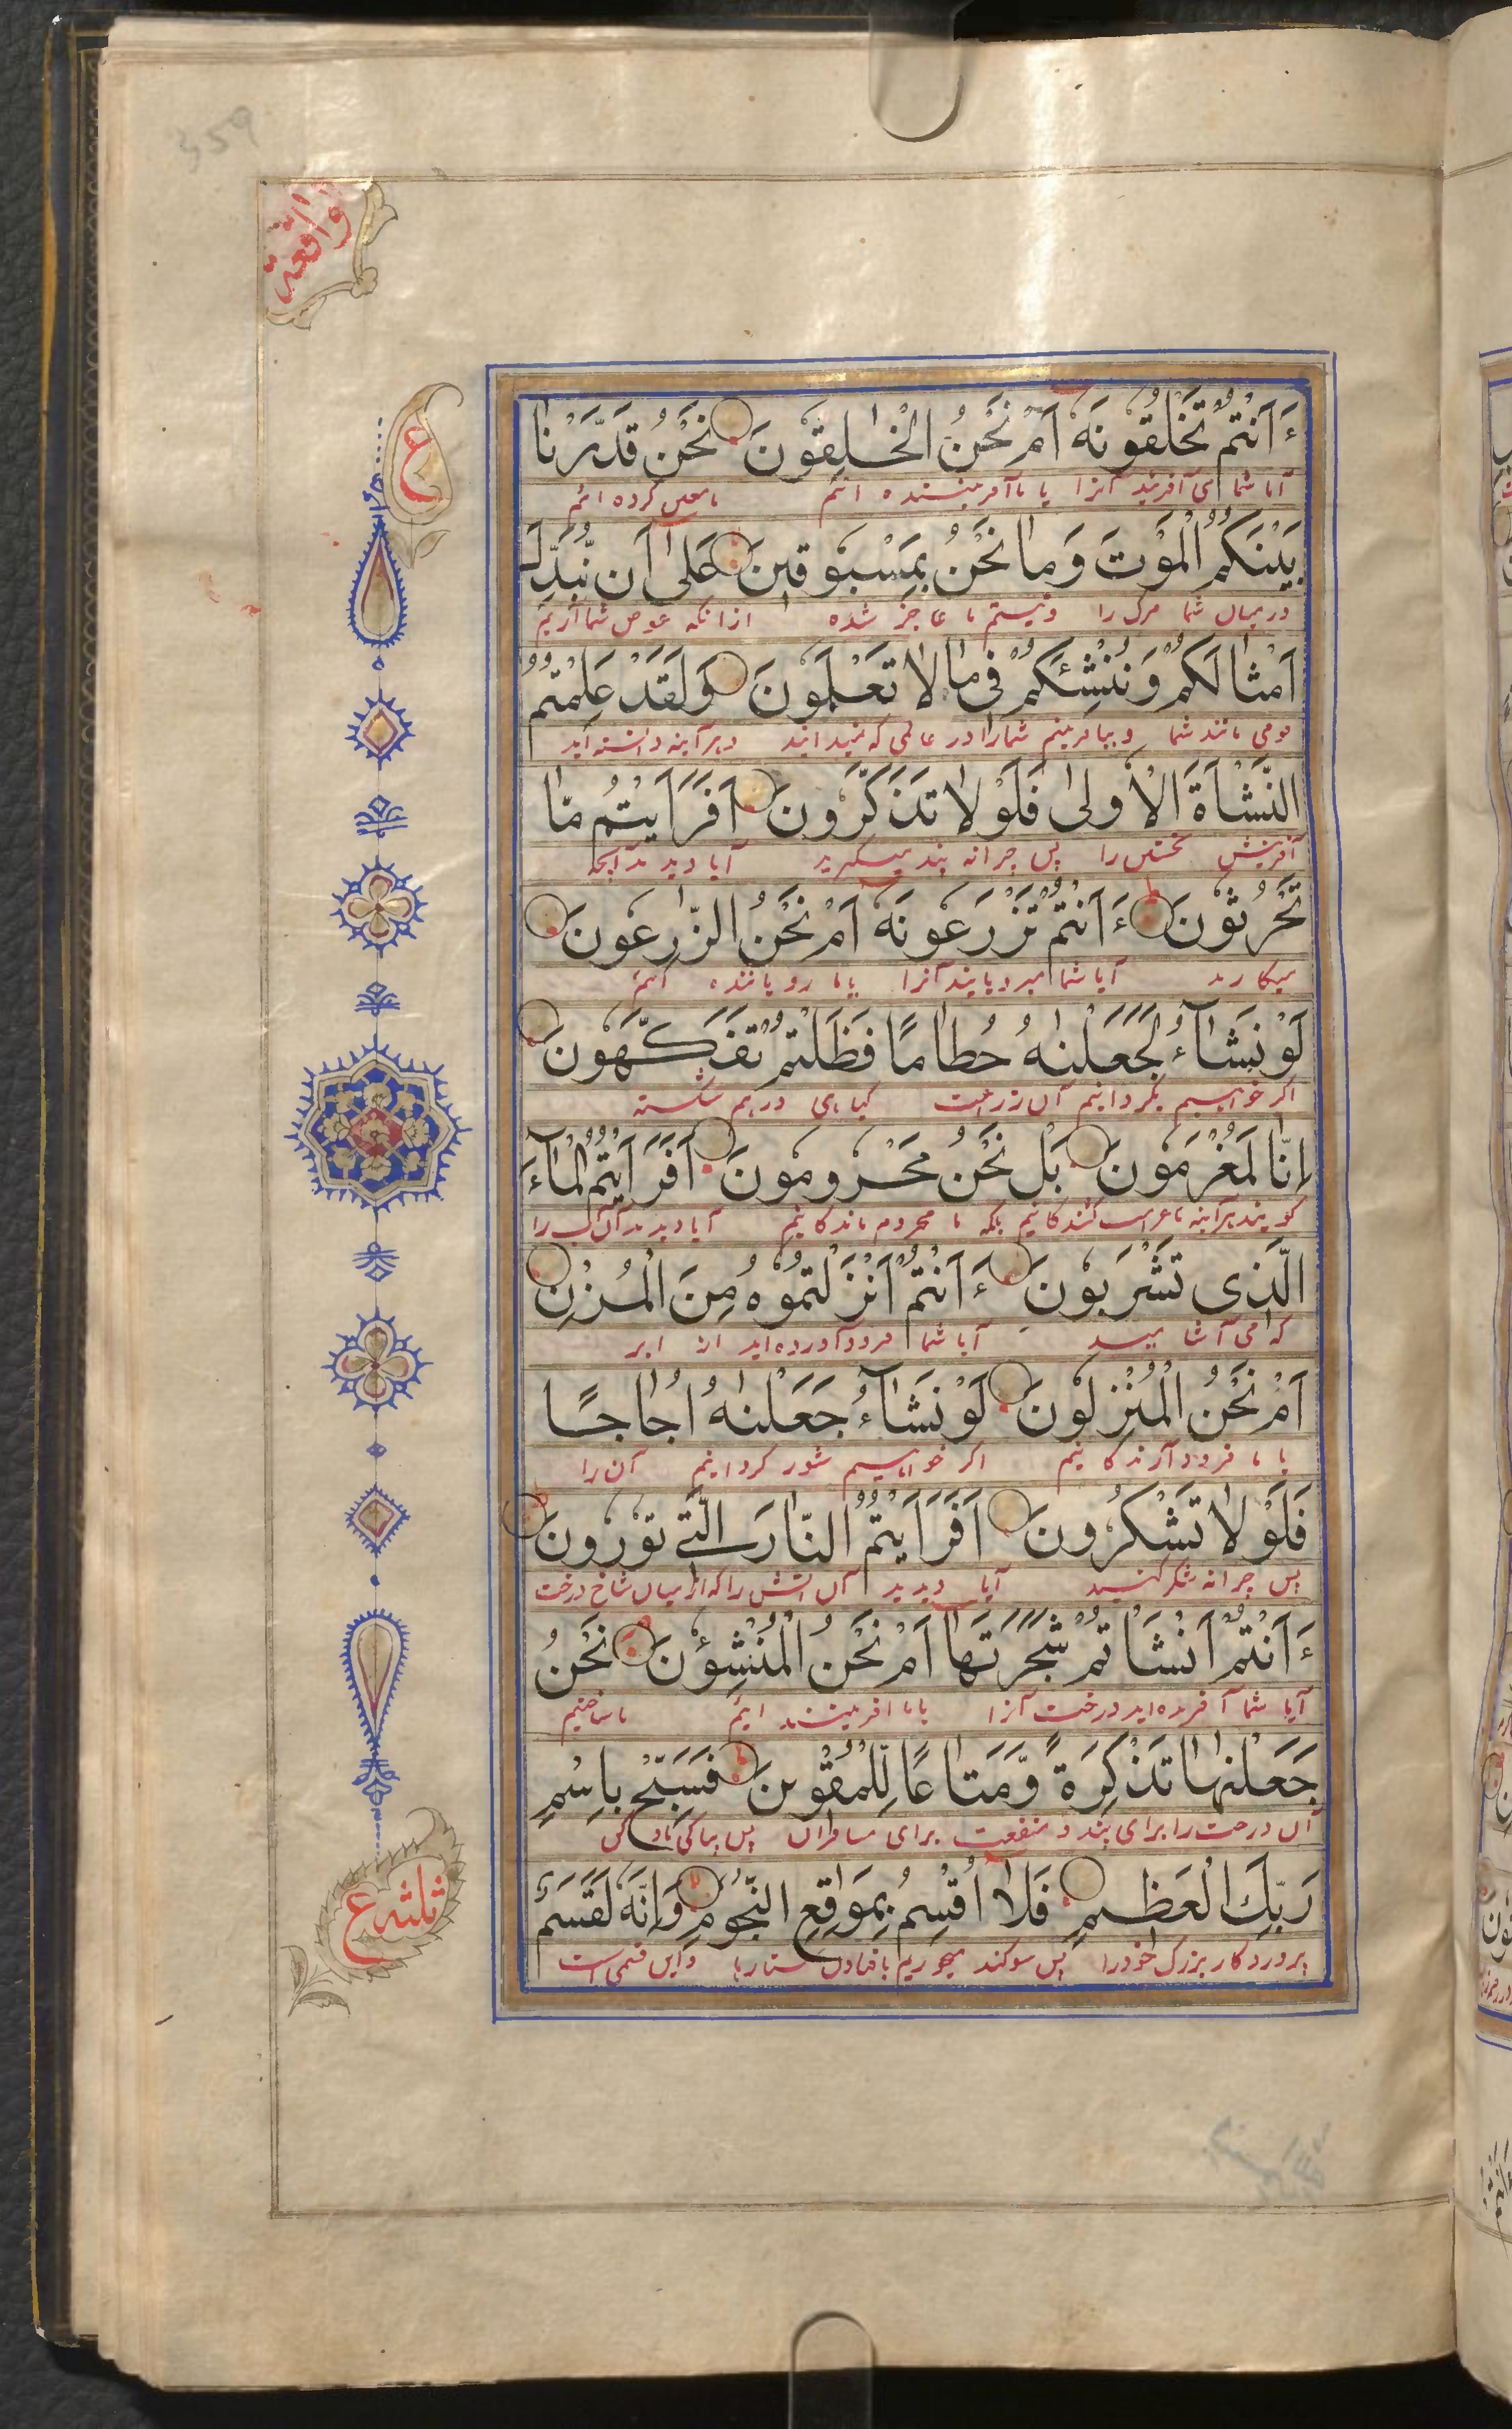 359
واقعة
ع
ءَاَنْتُمْ تَخْلُقُونَهٗ اَمْ نَحْنُ الْخٰلِقُونَ نَحْنُ قَدَّرْنَا
آیا شما می آفرینید آنرا یا ما آفریننده ائیم ما معین کرده ائیم
بَيْنَكُمُ الْمَوْتَ وَمَا نَحْنُ بِمَسْبُوقِينَ عَلٰى اَنْ نُبَدِّلَ
درمیان شما مرک را و نیستم ما عاجز شده ازانکه عوض شما آریم
اَمْثَالَكُمْ وَنُنْشِئَكُمْ فِى مَا لَا تَعْلَمُونَ وَلَقَدْ عَلِمْتُمُ
قومی مانند شما و بیافرینیم شمارا در عالمی که نمیدانید و هرآینه دانسته اید
النَّشْاَةَ الْاُولٰى فَلَوْلَا تَذَكَّرُونَ اَفَرَاَيْتُمْ مَّا
آفرینش نخستین را پس چرا نه پند میگیرید آیا دیدید آنچه
تَحْرُثُونَ ءَاَنْتُمْ تَزْرَعُونَهٗ اَمْ نَحْنُ الزّٰرِعُونَ
میکارید آیا شما میرویانید آنرا یا ما رویاننده ائیم
لَوْ نَشَاۤءُ لَجَعَلْنٰهُ حُطَامًا فَظَلْتُمْ تَفَكَّهُونَ
اکر خواهیم بگردانیم آن زراعت کیاهی درهم شکسته
اِنَّا لَمُغْرَمُونَ بَلْ نَحْنُ مَحْرُومُونَ اَفَرَاَيْتُمُ الْمَاۤءَ
کویند هرآینه ما غرامت کشندکانیم بلکه ما محروم ماندکانیم آیا دیدید آن آب را
الَّذِى تَشْرَبُونَ ءَاَنْتُمْ اَنْزَلْتُمُوهُ مِنَ الْمُزْنِ
که می آشامید آیا شما فرود آورده اید از ابر
اَمْ نَحْنُ الْمُنْزِلُونَ لَوْ نَشَاۤءُ جَعَلْنٰهُ اُجَاجًا
یا ما فرود آرندکانیم اکر خواهیم شور کردانیم آن را
فَلَوْلَا تَشْكُرُونَ اَفَرَاَيْتُمُ النَّارَ الَّتِى تُورُونَ
پس چرا نه شکر کنید آیا دیدید آن آتش را که از میان شاخ درخت
ءَاَنْتُمْ اَنْشَاْتُمْ شَجَرَتَهَا اَمْ نَحْنُ الْمُنْشِؤُنَ نَحْنُ
آیا شما آفریده اید درخت آنرا یا ما آفریننده ائیم ما ساختیم
جَعَلْنٰهَا تَذْكِرَةً وَّمَتَاعًا لِّلْمُقْوِينَ فَسَبِّحْ بِاسْمِ
آن درخت را برای پند و منفعت برای مسافران پس بپاکی یاد کن
رَبِّكَ الْعَظِيمِ فَلَا اُقْسِمُ بِمَوٰقِعِ النُّجُومِ وَاِنَّهٗ لَقَسَمٌ
پروردکار بزرک خودرا پس سوکند میخوریم بافتادن ستارها و این قسمی است
ثلثه ع